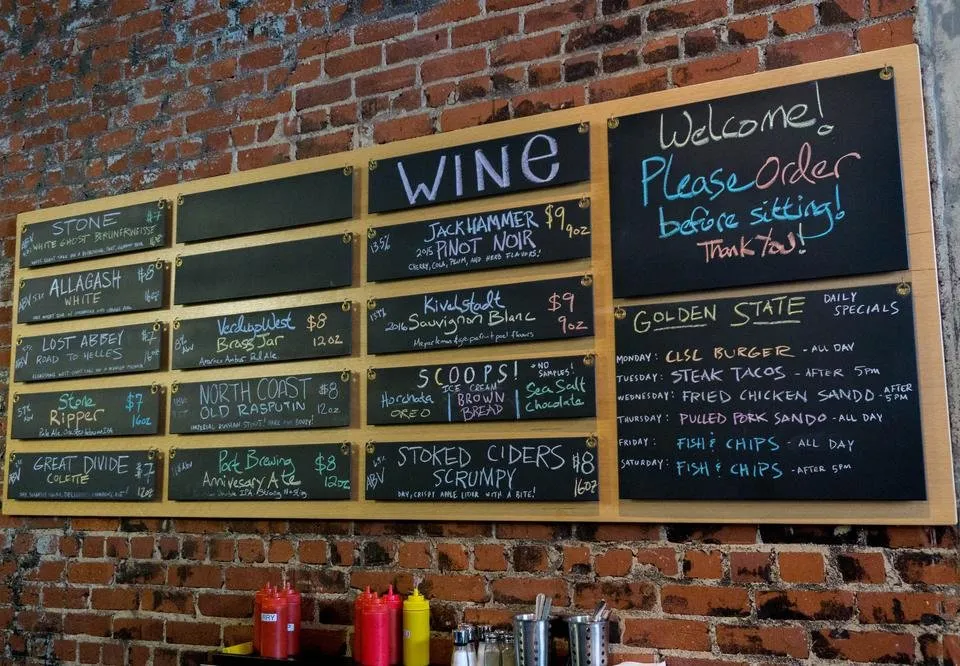 STONE $7
WHITE GHOST BERLINERWEISSE
ALLAGASH $8
WHITE 16oz
ABV
LOST ABBEY $7
ROAD TO HELLES 16oz
ABV
Stone $7
Ripper 16oz
ABV
GREAT DIVIDE $7
COLETTE 12oz
ABV
$8
Brass Jar 12oz
American Amber Red Ale
NORTH COAST $8
OLD RASPUTIN 12oz.
IMPERIAL RUSSIAN STOUT!
Port Brewing $8
Annivesary Ale 12oz
WINE
13.5% JACKHAMMER $9
2015 PINOT NOIR 9oz
CHERRY, COLA, PLUM, AND HERB FLAVORS!
Kivelstadt $9
2016 Sauvignon Blanc 9oz
SCOOPS! -NO SAMPLES!
ICE CREAM
Horchata BROWN Sea Salt
OREO BREAD Chocolate
STOKED CIDERS $8
ABV SCRUMPY 16oz
DRY, CRISPY APPLE CIDER WITH A BITE!
Welcome!
Please Order
before sitting!
Thank You!
GOLDEN STATE DAILY SPECIALS
MONDAY: CLSC BURGER - ALL DAY
TUESDAY: STEAK TACOS - AFTER 5PM
WEDNESDAY: FRIED CHICKEN SANDO - AFTER 5PM
THURSDAY: PULLED PORK SANDO - ALL DAY
FRIDAY: FISH & CHIPS - ALL DAY
SATURDAY: FISH & CHIPS - AFTER 5PM